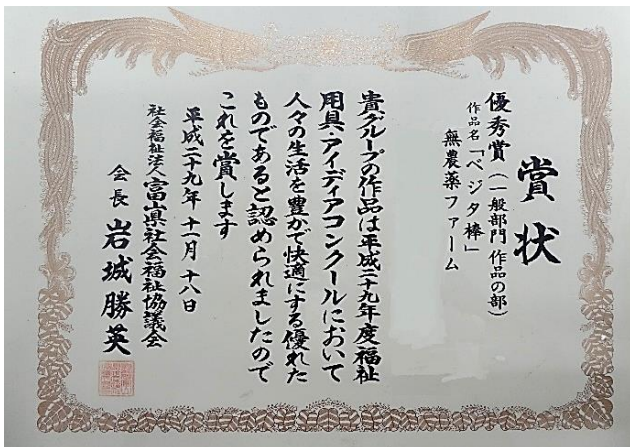 賞状
優秀賞(一般部門 作品の部)
作品名「ベジタ棒」
無農薬ファーム
貴グループの作品は平成二十九年度福祉
用具・アイディアコンクールにおいて
人々の生活を豊かで快適にする優れた
ものであると認められましたので
これを賞します
平成二十九年 十一月 十八日
社会福祉法人 富山県社会福祉協議会
会長 岩城勝英